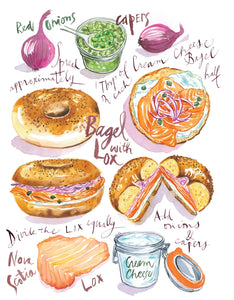 Red Onions
Capers
Spread
approximately
1 Tbsp of Cream Cheese
on each
Bagel
half
Bagel
with
Lox
Divide the Lox equally
Add
onions
&
capers
Nova
Scotia
Lox
Cream
Cheese